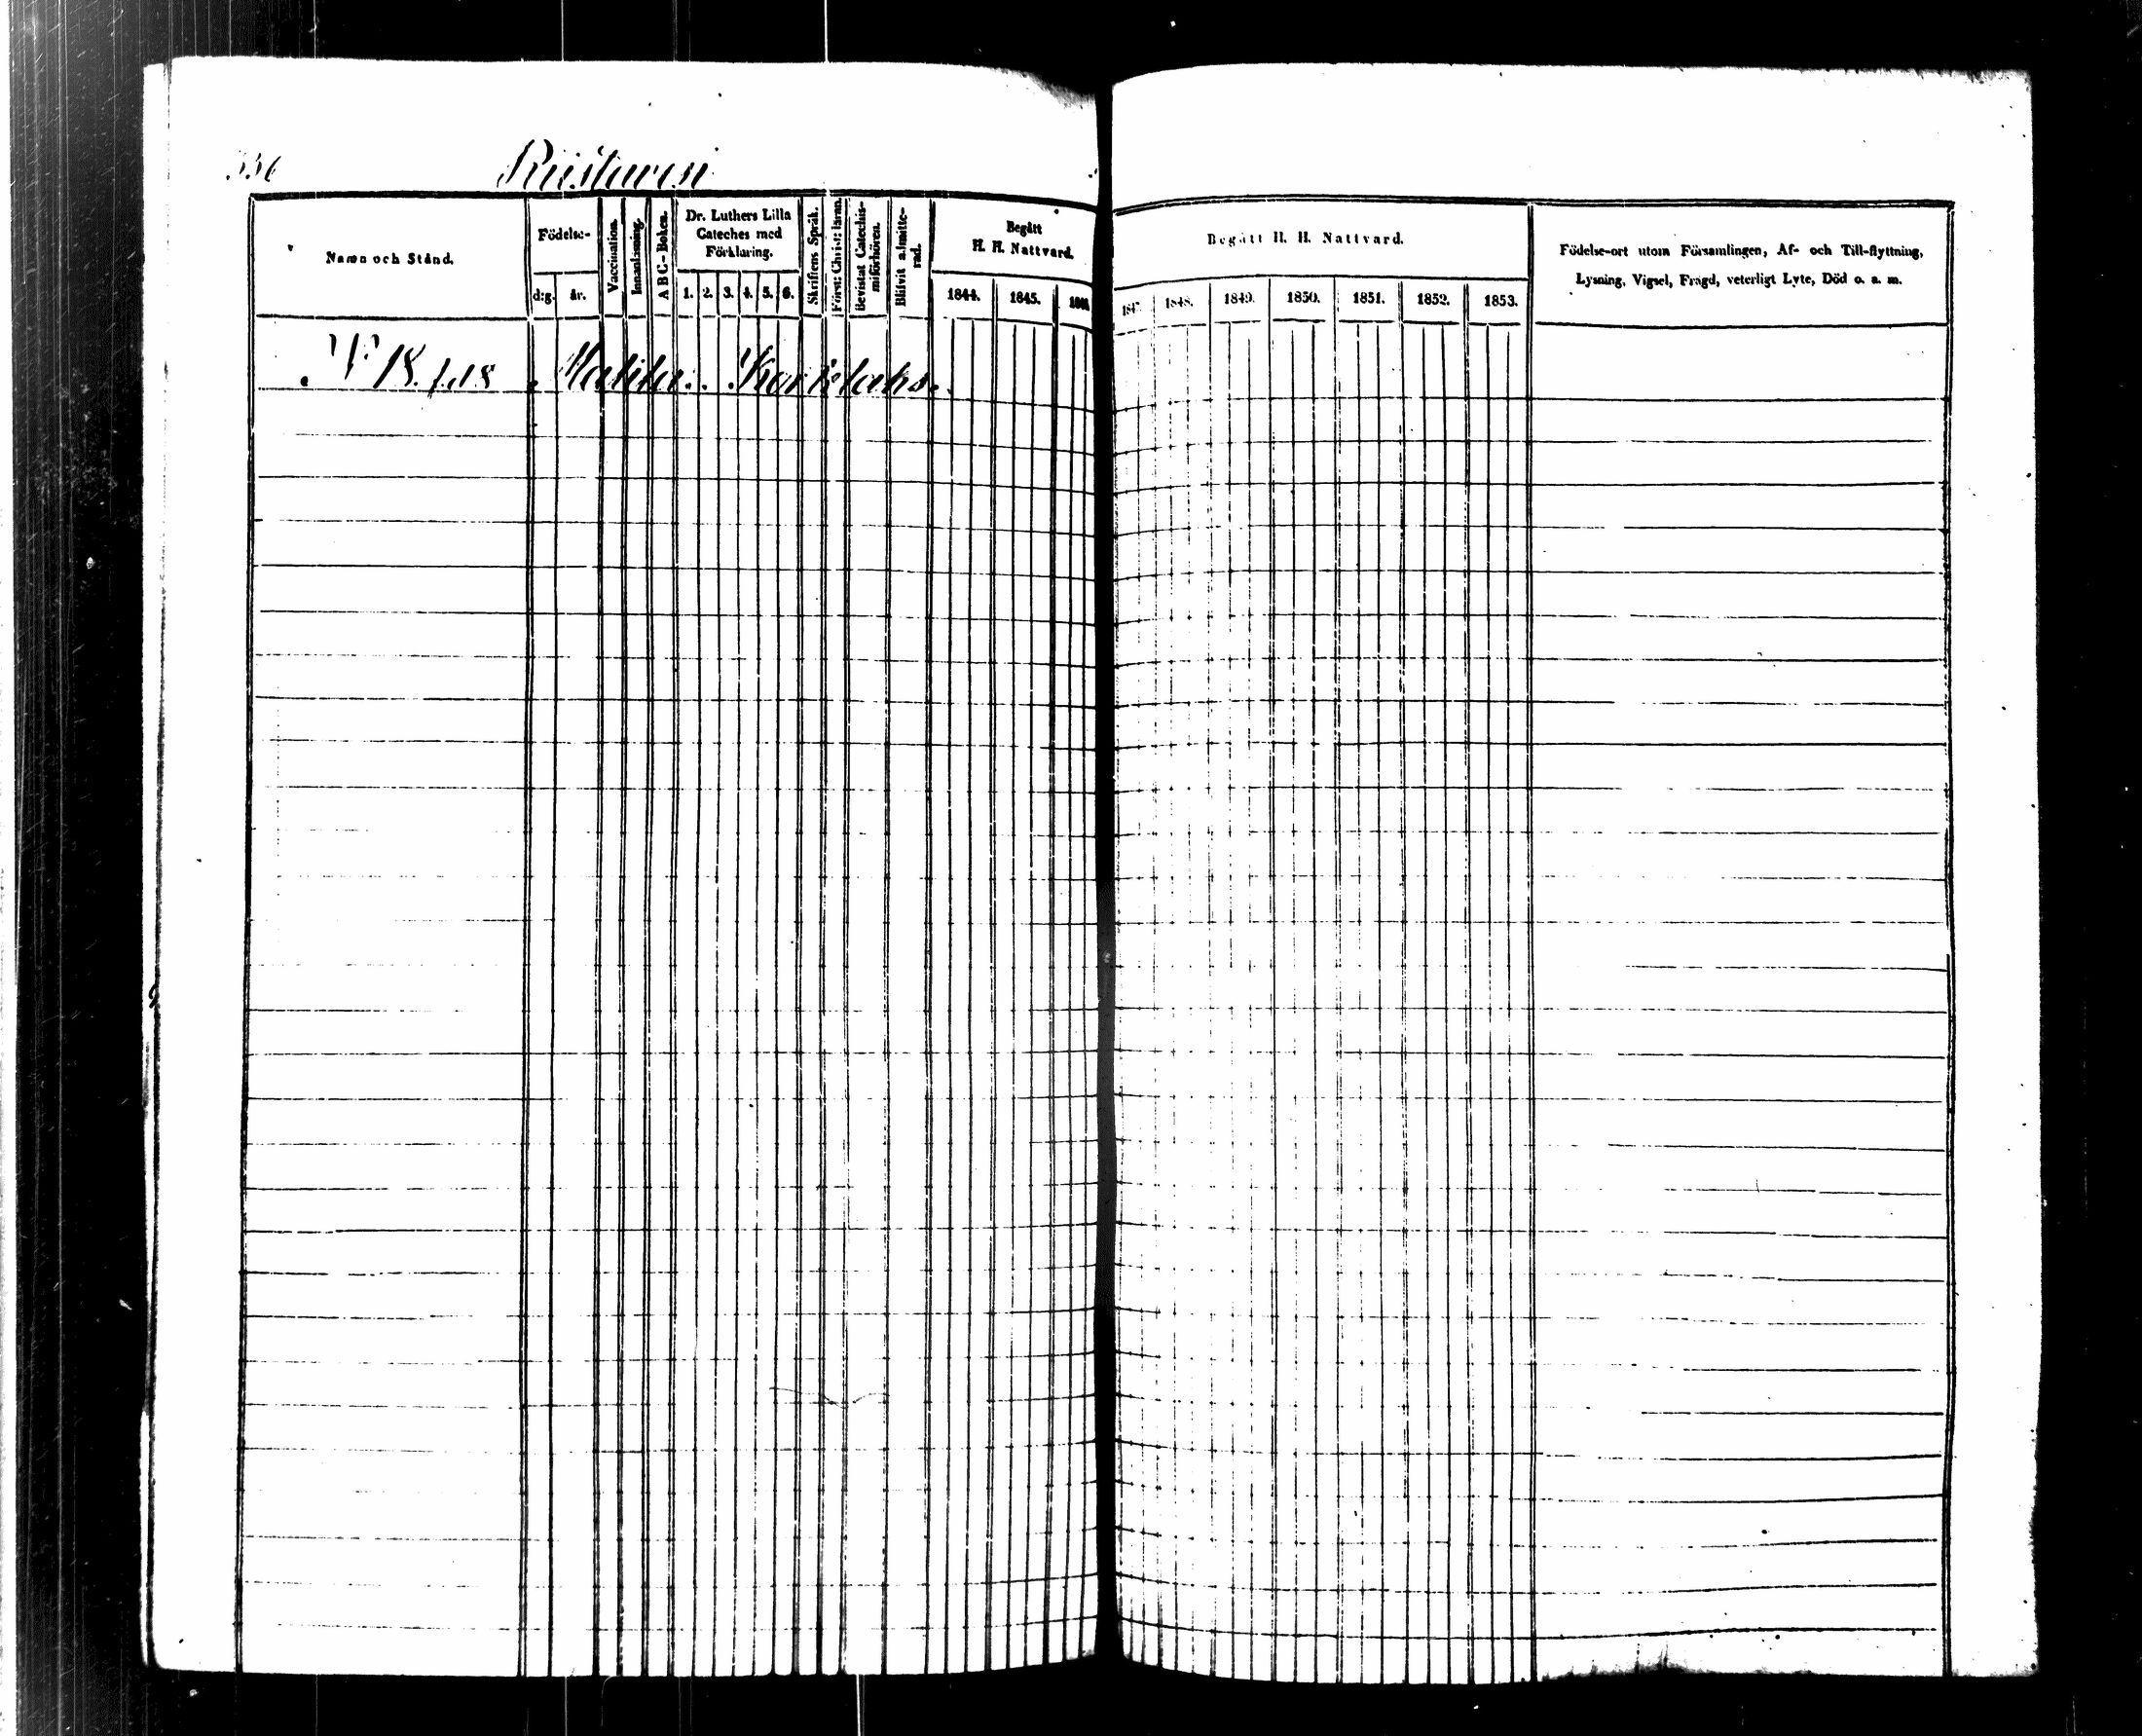 336
Ristavesi
Namn och Stånd.
Födelse-
d:g. år.
Vaccination.
Innanläsning.
A B C-Boken.
Dr. Luthers Lilla
Cateches med
Förklaring.
1. 2. 3. 4. 5. 6.
Skriftens Språk.
Först: Christ: läran.
Bevistat Catechis-
miförhören.
Blifvit admitte-
rad.
Begått
H. H. Nattvard.
1844. 1845. 1846
Begått H. H. Nattvard.
1847. 1848. 1849. 1850. 1851. 1852. 1853.
Födelse-ort utom Församlingen, Af- och Till-flyttning,
Lysning, Vigsel, Frägd, veterligt Lyte, Död o. s. m.